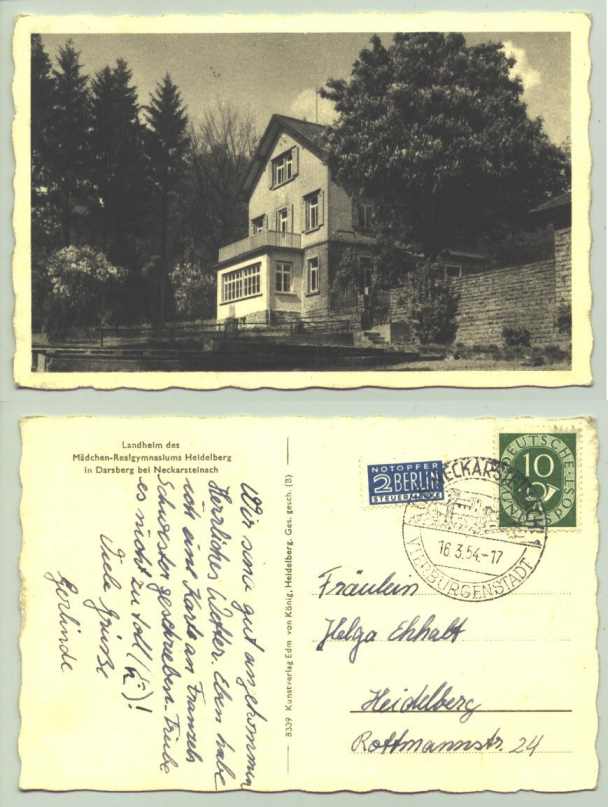 Landheim des
Mädchen-Realgymnasiums Heidelberg
in Darsberg bei Neckarsteinach
Wir sind gut angekommen
Herrliches Wetter. Eben habe
ich eine Karte an Franzels
Schwester geschrieben. Treibe
es nicht zu toll ( )!
Viele Grüsse
Gerlinde
8339 Kunstverlag Edm von König, Heidelberg. Ges. gesch. (B)
NOTOPFER
2 BERLIN
STEUERMARKE
DEUTSCHE
10
BUNDESPOST
NECKARSTEINACH
16.3.54.-17
VIERBURGENSTADT
Fräulein
Helga Ehhalt
Heidelberg
Rottmannstr. 24